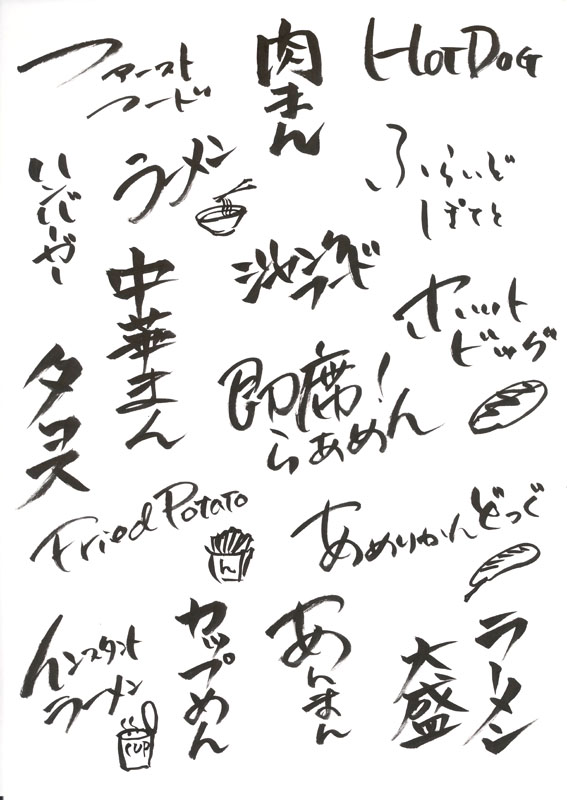 ファースト
フード
肉まん
HOTDOG
ハンバーガー
ラーメン
ふらいど
ぽてと
中華まん
ジャンク
フード
ホット
ドッグ
タコス
即席!
らぁめん
Fried Potato
ん
あめりかんどっぐ
インスタント
ラーメン
CUP
カップめん
あんまん
ラーメン
大盛